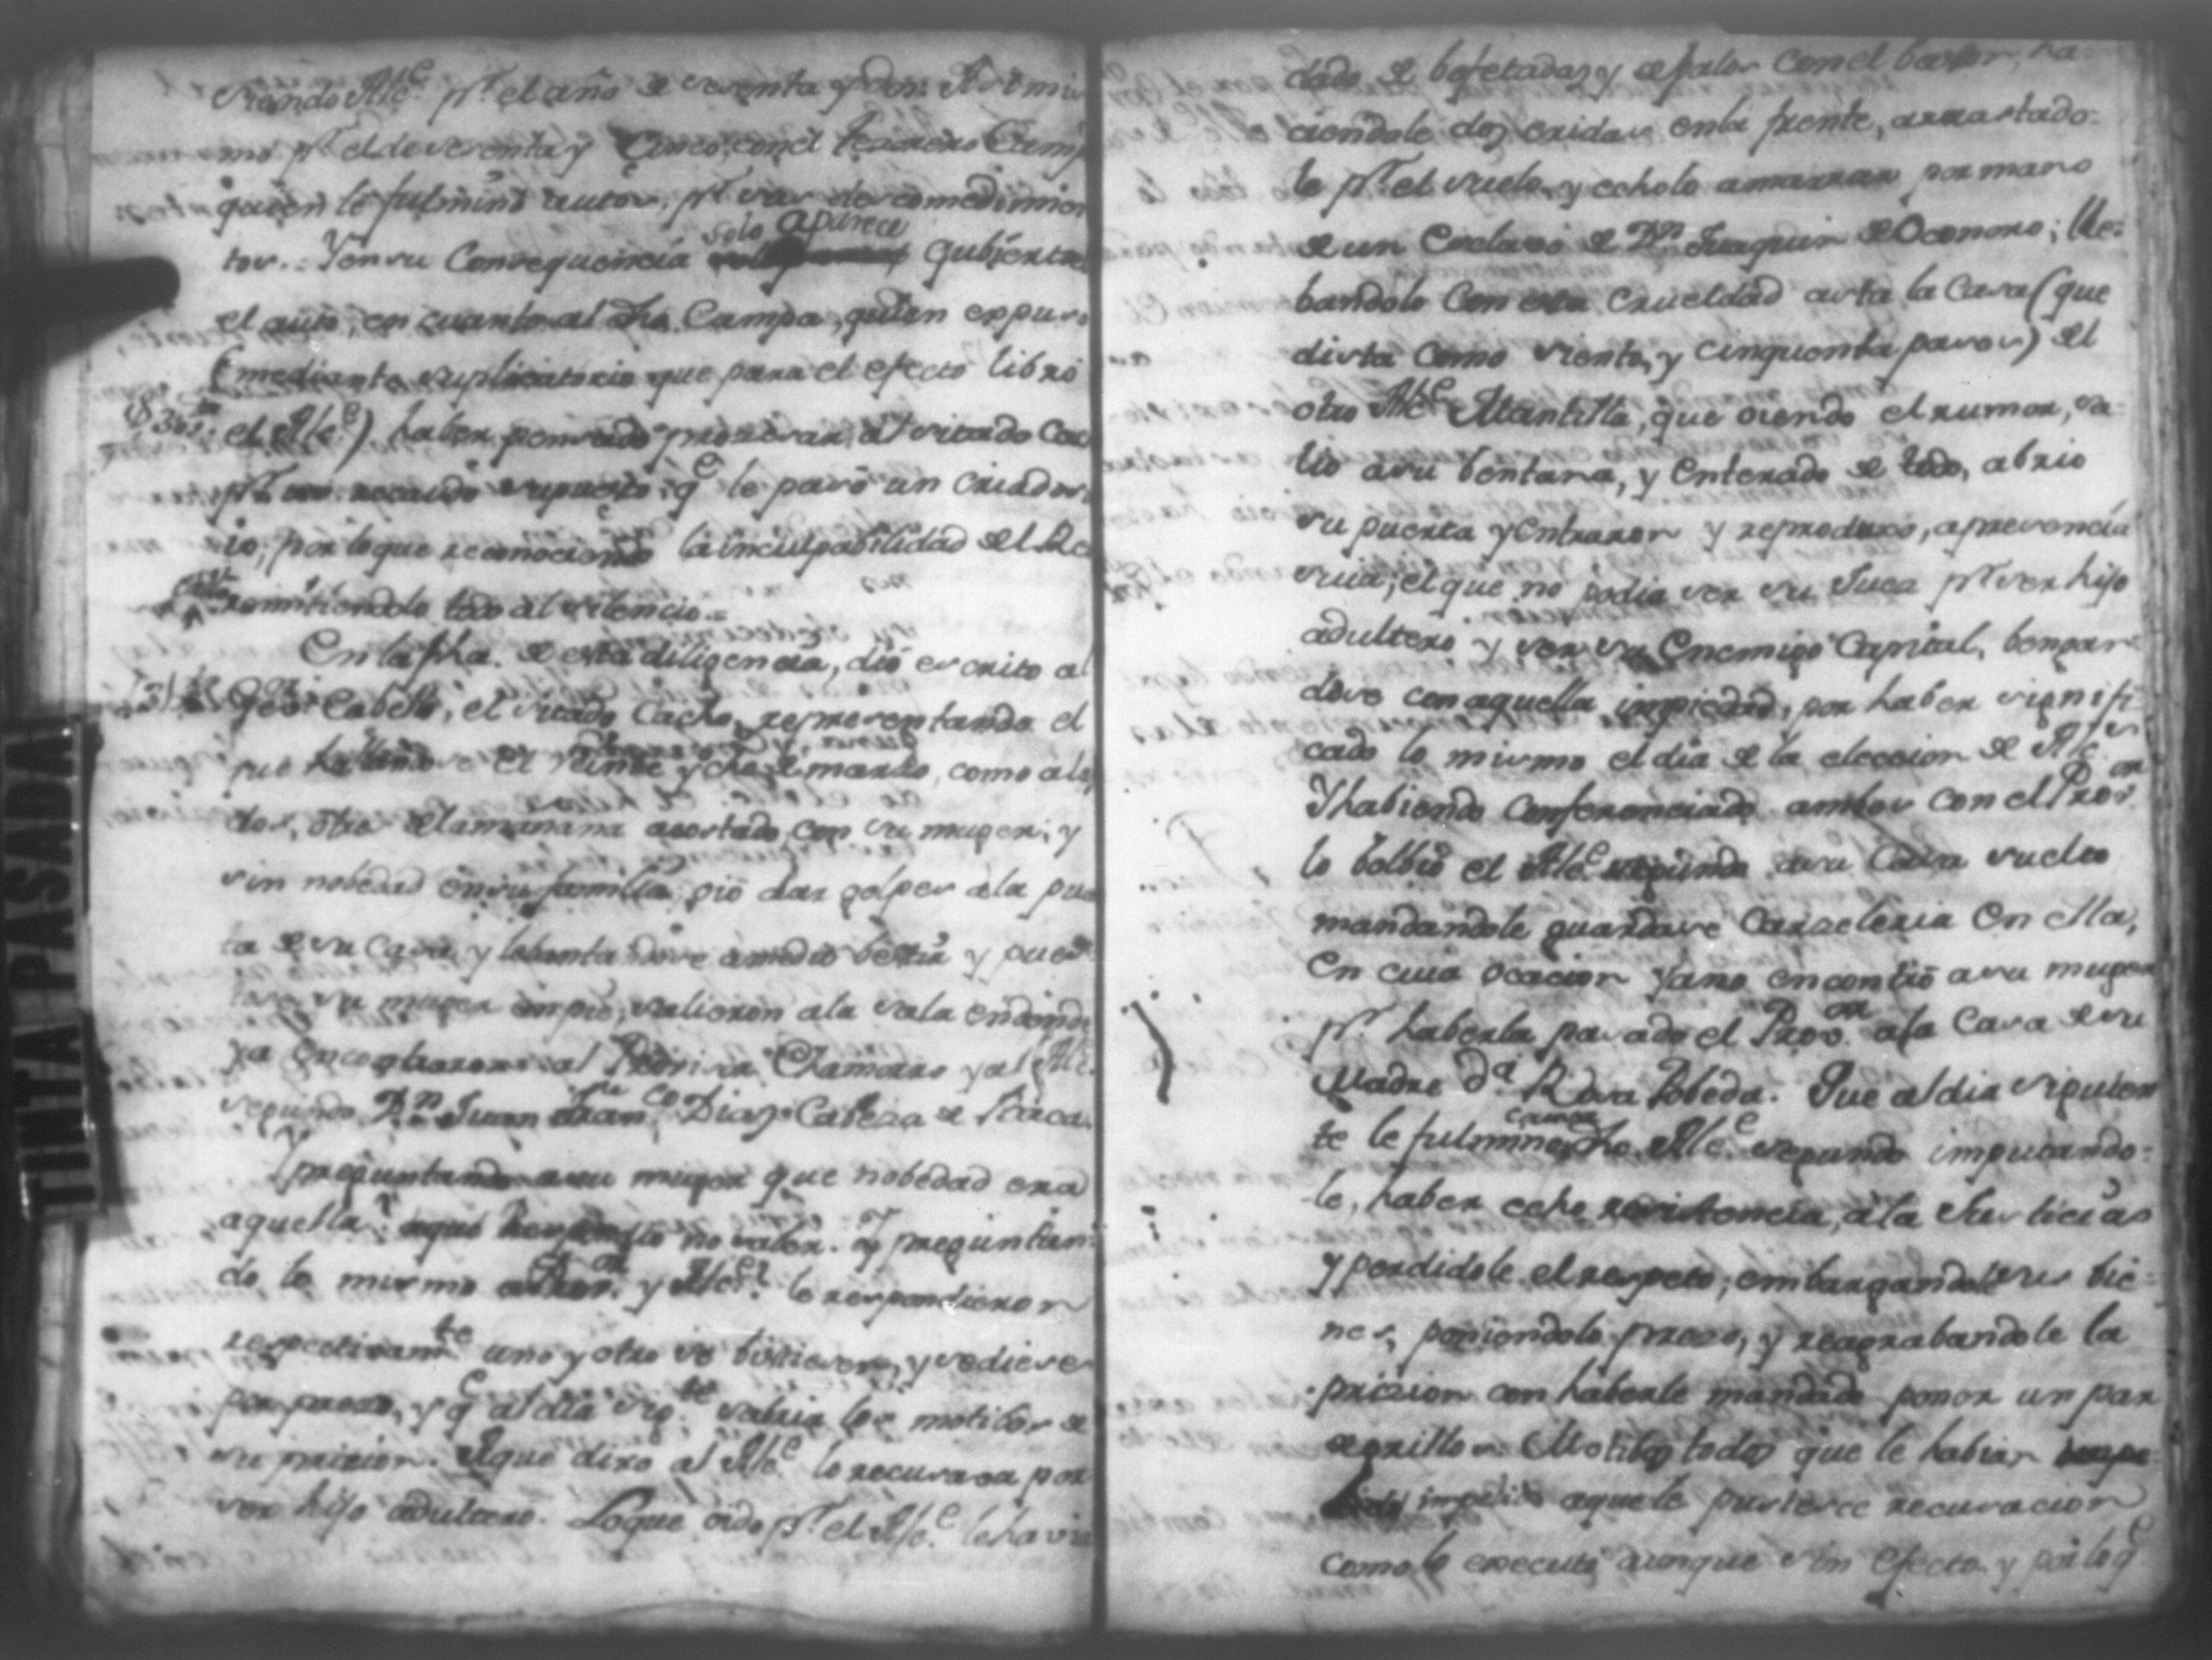 siendo Alc.e p.r el año de setenta y dos. Asimis
mo p.r el de setenta y Cinco con el tesorero Camp
quien le fulminò autos, p.r sus descomedimien
tos. Yensu Consequencia solo aparece Gubierta
el auto, en cuanto al dho Campa, quien expuso
(mediante suplicatorio que para el efecto libro
el Alc.e) haber pensado procesar al sitado Cac
p.r un recaudo supuesto q.e le pasò un criado s
io; por lo que reconociendo la inculpabilidad del Re
remitiendolo todo al silencio =
En la fha. de esta diligencia, diò escrito al
Gov.or Cabello, el sitado Cacho, representando el
que hallandose el veinte y ocho de marzo, como alas
dos, òtres dela mañana acostado con su muger, y
sin nobedad ensu familia, oiò dar golpes ala pue
ta de su Casa, y lebantandose amedio bestir y pues
tose su muger enpie, salieron ala sala endonde
ya encontraron al Provisor Chamorro y al Alc.
segundo D.n Juan Fran.co Diaz Cabeza de Baca.
Y preguntando asu muger que nobedad era
aquella? aque respondio no saber. Y preguntan
do lo mismo a Prov.or y Alc.e? le respondieron
respectivam.te uno y otro se bistiese, y sediese
por preso, y q.e al dia sig.te sabria los motibos de
su pricion. Aque dixo al Alc.e lo recusava por
ser hijo adultero. Loque oido p.r el Alc.e leha via
dado de bofetadas y de palos con el baston, ha-
ciendole dos eridas enla frente, arrastado-
lo p.r el suelo, y echolo amarrar por mano
de un Esclavo de D.n Juaquin de Oconoro; lle-
bandolo Con esta Crueldad asta la Casa (que
dista Como siento, y cinquenta pasos) del
otro Alc.e Mantilla, que oiendo el rumor, sa-
lio asu bentana, y Enterado de todo, abrio
su puerta y entraron y reproduxo, apresencia
suia; el que no podia ser su Juez p.r ser hijo
adultero y ser su Enemigo Capital, bengan
dose con aquella impiedad, por haber signifi
cado lo mismo el dia de la eleccion de Alc.es
Y habiendo Conferenciado ambos con el Prov.or
lo bolbiò el Alc.e segundo asu Casa suelto
mandandole guardase Carceleria En ella,
En cuia ocacion yano encontrò asu muger
p.r haberla pasado el Prov.or ala Casa de su
Madre D.a Rosa Pobeda. Que al dia siguien
te le fulminò causa dho. Alc.e segundo imputando-
le, haber echo resistencia, ala Justicias
y perdidole el respeto; embargandole sus bie-
nes, poniendolo preso, y reagrabandole la
pricion con haberle mandado poner un par
de grillos. Motibos todos que le habian
impedido aquele pusiese recusacion
como lo executò aunque sin efecto y por lo q.e